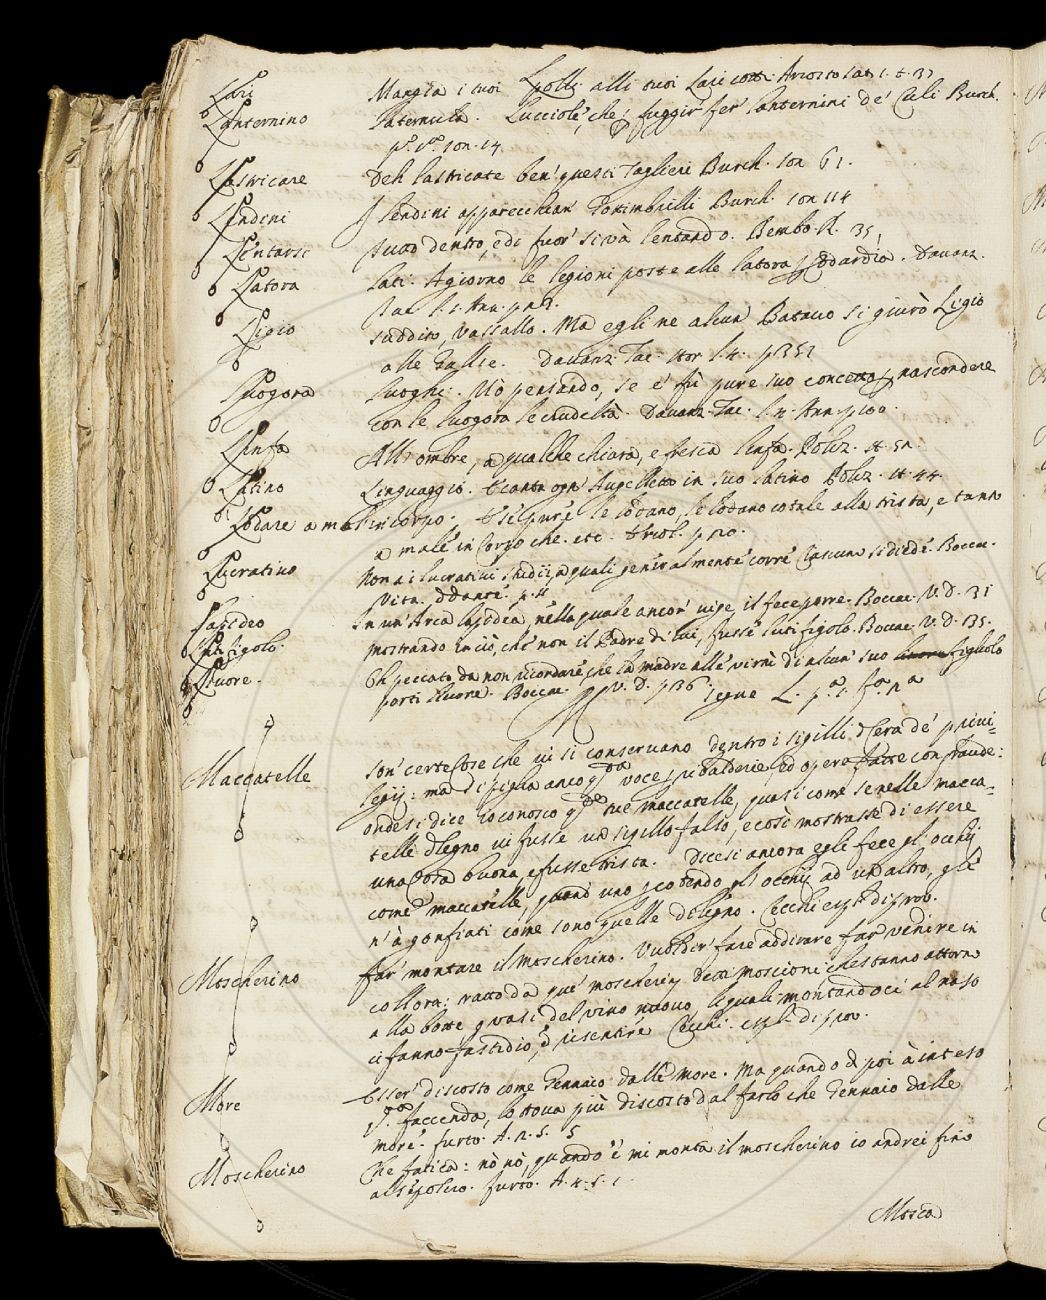 Lari Mangia i tuoi Polli alli tuoi Lari cotti Ariosto Sat. 1. t. 37
Lanternino Paternula. Lucciole, che fuggir fer' lanternini de' Culi Burch.
pᵃ. pᵃ. son. 14
Lastricare Deh lastricate ben' questi taglieri Burch. son 61.
Lendini I lendini apparecchian' Burch. son 114
Lentarsi dentro, e di fuor' si và lentando. Bembo. R. 35
Latora Lati. A giorno le legioni poste alle latora Davanz.
Tac. l. 1. Ann.
Ligio suddito, Vassallo. Ma egli ne alcun' Batavo si giurò Ligio
alle Gallie. Davanz. Tac. Stor. l. 4. p 352
Luogora Luoghi. Mò pensando, se e' fù pure suo concetto nascondere
con le luogora le crudeltà. Davanz. Tac. l. 4. Ann. p 100.
Linfa All'ombre, a qualche chiara, e fresca linfa. Poliz. st. 52
Latino Linguaggio. E canta ogn' Augelletto in suo latino Poliz. st. 44.
Lodare a mal' in corpo. E si pure le lodano, le lodano cotale alla trista, e tanto
a male' in Corpo che. etc. p 20.
Lucrativo Non a i lucrativi studii, a quali generalmente corre Ciascuno si diede. Boccac.
Vita. Dante. p. 4
Lapideo In un' Arca lapidea, nella quale ancor' vige, il fece porre. Boccac. V. D. 31
Lutifigolo. mostrando in ciò, che non il Padre di lui, fusse lutifigolo. Boccac. V. D. 135.
Livore. Oh peccato da non ricordare, che la madre alle virtù di alcun' suo figliolo
porti livore. Boccac. V. D. p 36. segue L. pᵃ.
Maccatelle son' certe Cose che in si conservano dentro i sigilli di Cera de' privi-
legij: ma di piglia anco q.ᵗᵃ voce p ribalderie, ed opera fatte con fraude:
onde si dice io conosco q.ᵗᵉ tue maccatelle, quasi come se nelle macca-
telle di legno vi fusse un sigillo falso, e così mostrasse di essere
una Cosa buona, e fusse trista. Dicesi ancora egli fece gl'occhij
come maccatelle, quand' uno percotendo gl'occhij ad un altro, gle
n' à gonfiati come sono quelle di legno. Cecchi espl. di prov.
Moscherino far' montare il moscherino. Vuol dir' fare addirare far' venire in
collora: tratto da que' moscherini detti moscioni che stanno attorno
alla botte quasi del vino nuovo, li quali montandoci al naso
ci fanno fastidio, e risentire Cecchi. espl. di prov.
More Esser' discosto come Gennaio dalle more. Ma quando di poi à inteso
q.ᵗᵃ faccenda, lo trova più discosto dal farlo che Gennaio dalle
more. furto. A. 2. S. 5
Moscherino Che fatica: nò nò, quando e' mi monta il moscherino io andrei fino
al sepolcro. furto. A. 4. S. 1.
Mosca